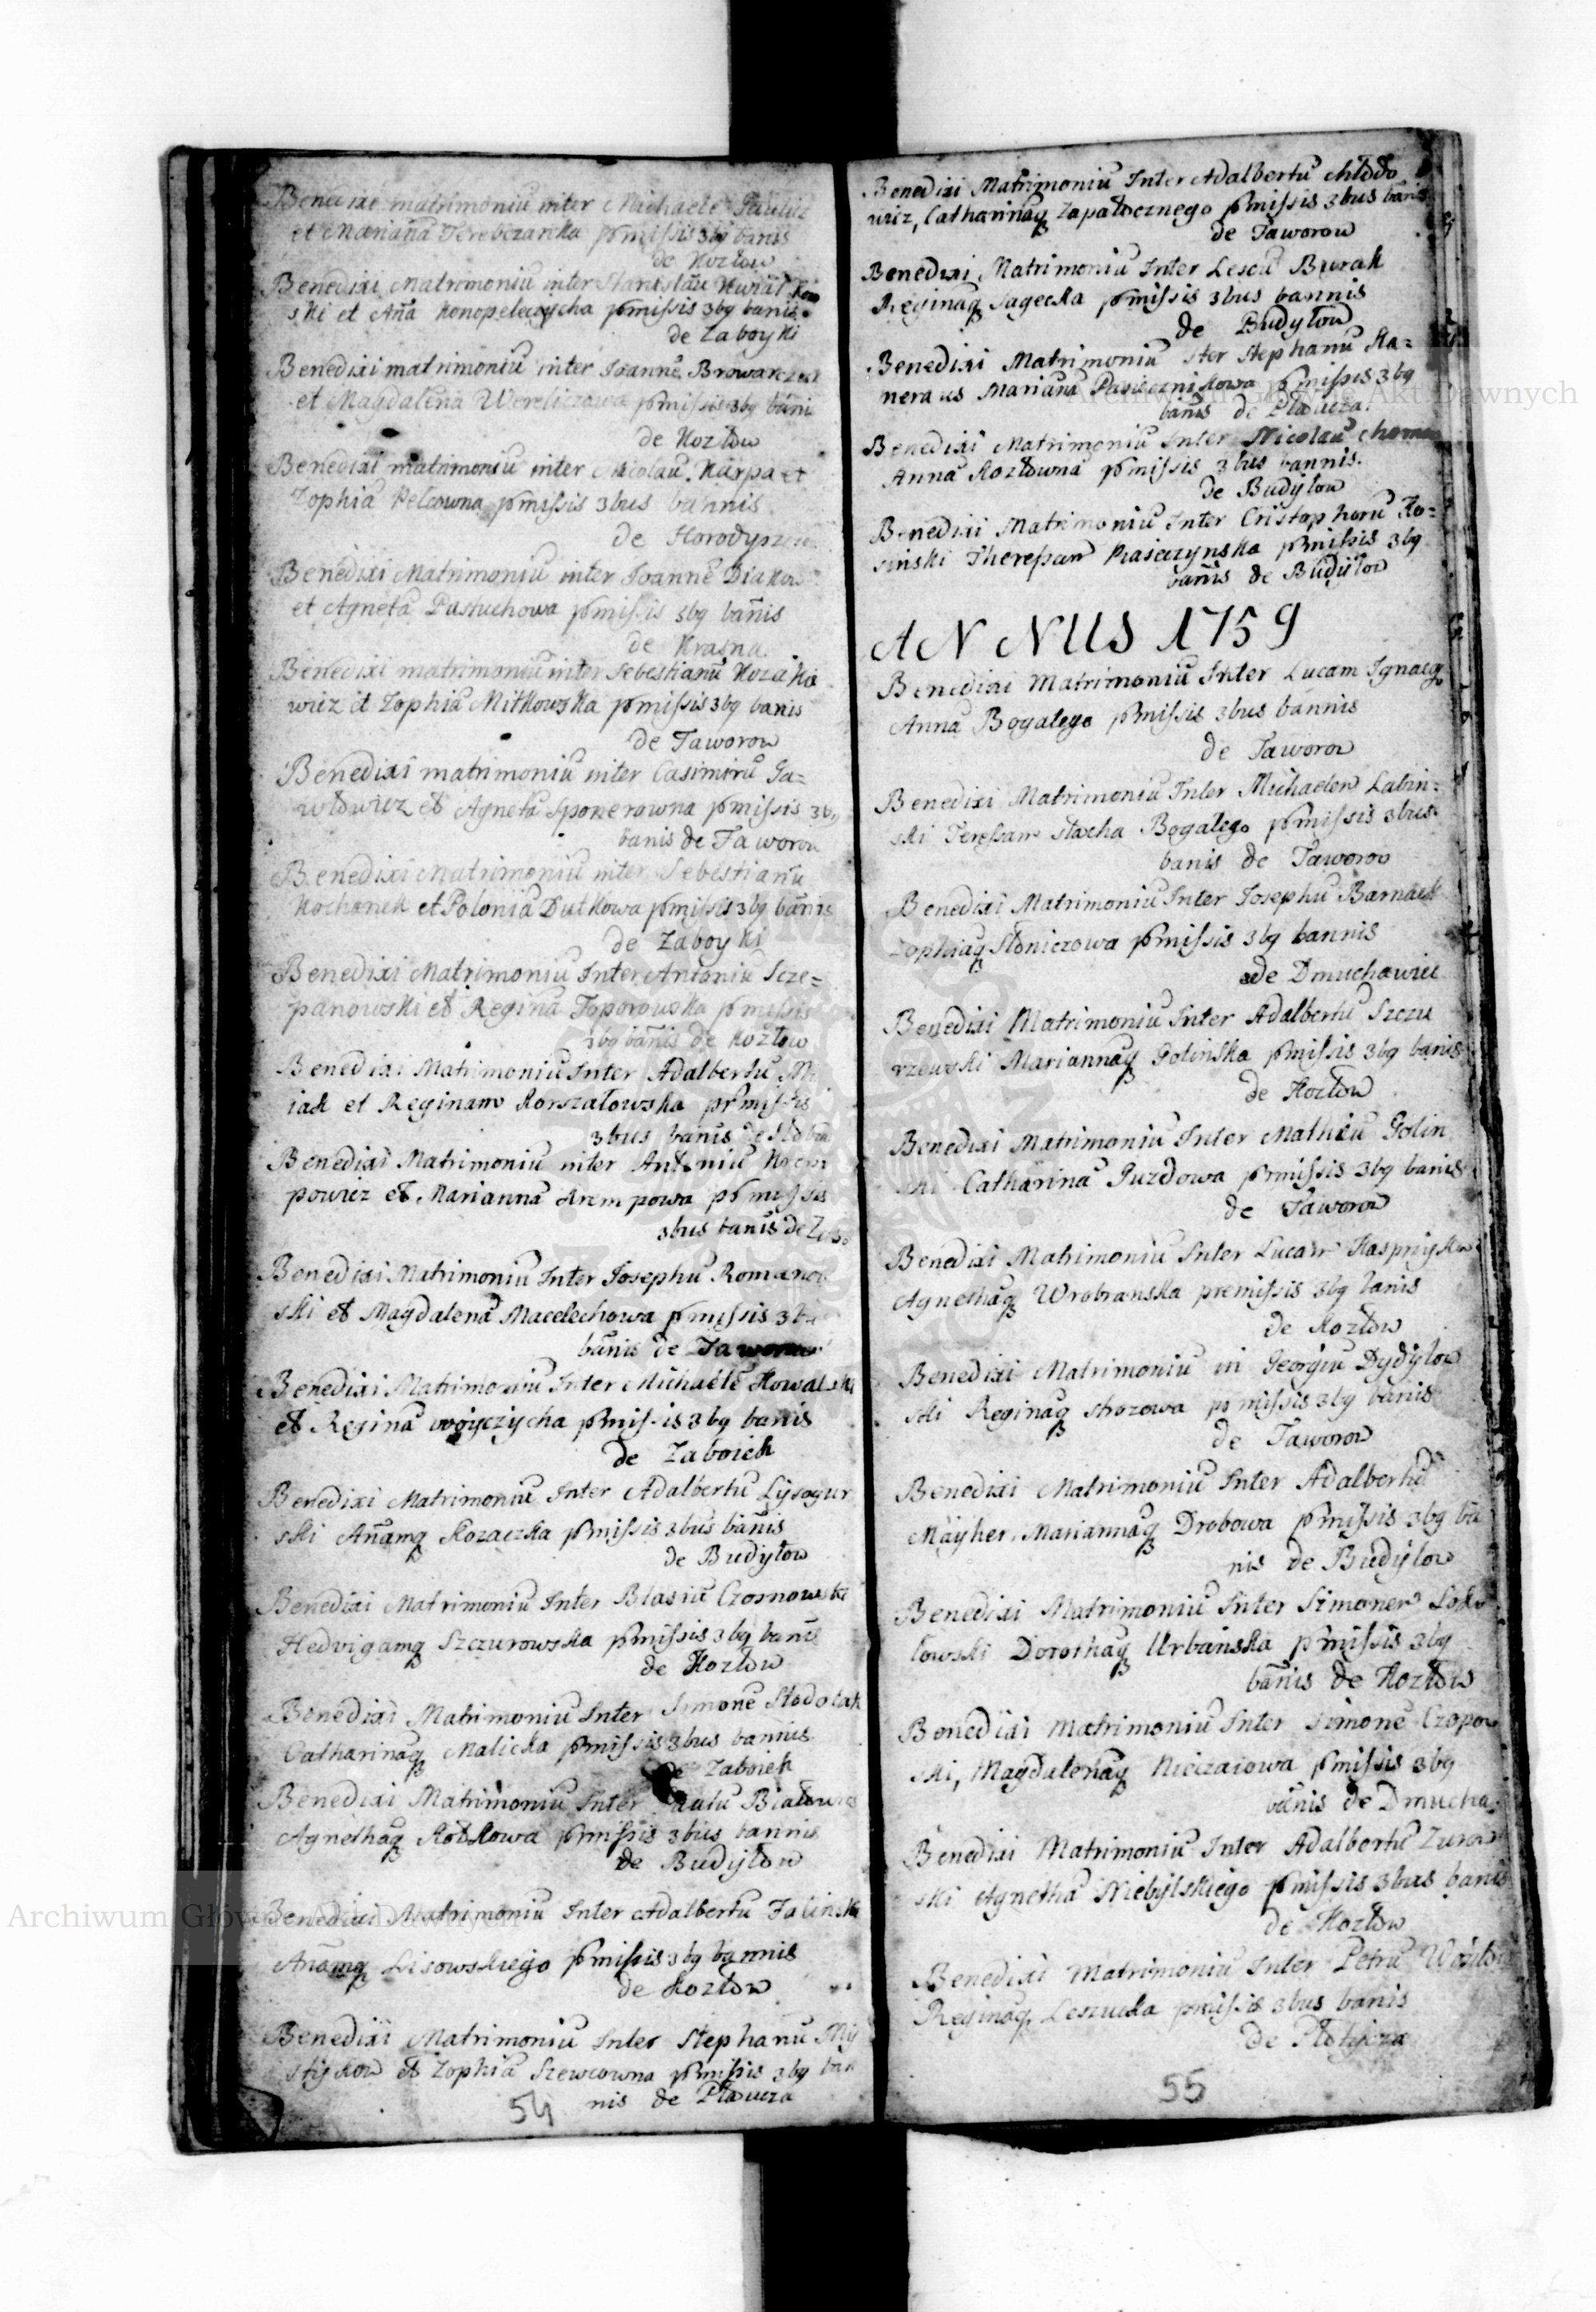 Benedixi matrimoniũ inter Michaelē Pauluz
et Mariañã Terebczarska p̃missis 3bq banis
de Kozłow
Benedixi Matrimoniũ inter Stanislãu Kwiat kow
ski et Añã Konopelczycha p̃missis 3bq banis
de Zaboyki
Benedixi matrimoniũ inter Joannē Browarczek
et Magdalenã Wereliczowa p̃missis 3bq bãni
de Kozłow
Benedixi matrimoniũ inter Nicolaũ Karpa et
Zophiã Pelcowna p̃missis 3bus bannis
de Horodyszcze
Benedixi Matrimoniũ inter Joannē Diakow
et Agnetã Pastuchowa p̃missis 3bq bañis
de Krasna
Benedixi matrimoniũ inter Sebestianũ Kozakie
wicz et Zophiã Mitkowska p̃missis 3bq banis
de Jaworow
Benedixi matrimoniũ inter Casimirũ Ga=
włowicz et Agnetã Sponerowna p̃missis 3bq
banis de Jaworow
Benedixi Matrimoniũ inter Sebestianũ
Kochanek et Poloniã Dutkowa p̃missis 3bq bãnis
de Zaboyki
Benedixi Matrimoniũ Inter Antoniũ Scze=
panowski et Reginã Toporowska p̃missis
3bq bañis de Kozłow
Benedixi Matrimoniũ Inter Adalbertũ
iak et Reginam Korszałowska pr̃missis
3bus banis de
Benedixi Matrimoniũ inter Antoniũ Krem
powicz et Mariannã Krempowa p̃missis
3bus banis de
Benedixi Matrimoniũ Inter Josephũ Romanow
ski et Magdalenã Macelechowa p̃missis 3b
bãnis de Jaworow
Benedixi Matrimoniũ Inter Michaelē Kowalski
et Reginã woyczycha p̃missis 3bq banis
de Zaboiek
Benedixi Matrimoniũ Inter Adalbertũ Lysogur
ski Añamq Kozaczka p̃missis 3bus bãnis
de Budyłow
Benedixi Matrimoniũ Inter Blasiũ Czosnowski
Hedvigamq Szczurowska p̃missis 3bq banis
de Kozłow
Benedixi Matrimoniũ Inter Simonē Stodolak
Catharinãq Malicka p̃missis 3bus bannis
de Zaboiek
Benedixi Matrimoniũ Inter Paulũ Białowas
Agnethãq Kotkowa p̃missis 3bus bannis
de Budyłow
Benedixi Matrimoniũ Inter Adalbertũ Falinski
Añamq Lisowskiego p̃missis 3bq bannis
de Kozłow
Benedixi Matrimoniũ Inter Stephanũ My
stykow et Zophiã Szewcowna p̃missis 3bq ban
nis de Płaucza
54
Benedixi Matrimoniũ Inter Adalbertũ Młodo
wicz, Catharinãq Zapałocznego p̃missis 3bus banis
de Jaworow
Benedixi Matrimoniũ Inter Lescũ Burak
Reginãq Sagecka p̃missis 3bus bannis
de Budyłow
Benedixi Matrimoniũ Iter Stephanũ Ka=
nera us Marianã Pasiecznikowa p̃missis 3bq
banis de Płaucza
Benedixi Matrimoniũ Inter Nicolaũ
Annã Kozłowna p̃missis 3bus bannis.
de Budyłow
Benedixi Matrimoniũ Inter Cristophorũ Ko=
sinski Theressam Kasiczynska p̃missis 3bq
bañis de Budyłow
ANNUS 1759
Benedixi Matrimoniũ Inter Lucam Ignacy
Annã Bogalego p̃missis 3bus bannis
de Jaworow
Benedixi Matrimoniũ Inter Michaelem Labin=
ski Teressam Stacha Bogalego p̃missis 3bus
banis de Jaworow
Benedixi Matrimoniũ Inter Josephũ Barnack
Zophiãq Słoniczowa p̃missis 3bq bannis
de Dmuchawiec
Benedixi Matrimoniũ Inter Adalbertũ Szczu
rzewski Mariannãq Golinska p̃missis 3bq banis
de Kozłow
Benedixi Matrimoniũ Inter Mathēũ Golin
ski Catharinã Guzdowa p̃rmissis 3bq banis
de Jaworow
Benedixi Matrimoniũ Inter Lucam Kasprzykow
Agnethãq Wrobranska premissis 3bq banis
de Kozłow
Benedixi Matrimoniũ in Georgiũ Dydyłow
ski Reginãq Strozowa p̃missis 3bq banis
de Jaworow
Benedixi Matrimoniũ Inter Adalbertũ
Mayher, Mariannãq Drobowa p̃missis 3bq bã
nis de Budyłow
Benedixi Matrimoniũ Inter Simonem Soko
łowski Dorothãq Urbanska p̃missis 3bq
bãnis de Kozłow
Benedixi Matrimoniũ Inter Simonē Czopow
ski, Magdalenãq Nieczaiowa p̃missis 3bq
bãnis de Dmucha.
Benedixi Matrimoniũ Inter Adalbertũ Zurow
ski Agnethã Niebylskiego p̃missis 3bus banis
de Kozłow
Benedixi Matrimoniũ Inter Petrũ Woytow
Reginãq Leszucka p̃missis 3bus banis
de Płotycza
55
Archiwum Główne Akt Dawnych
Archiwum Główne Akt Dawnych